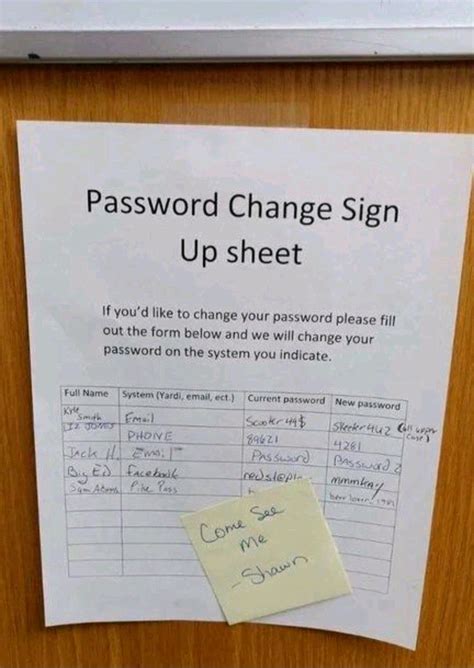 Password Change Sign
Up sheet
If you'd like to change your password please fill
out the form below and we will change your
password on the system you indicate.
Full Name System (Yardi, email, ect.) Current password New password
Kyle Smith Email Scooter49$ Skeeter442 (all upper case)
Liz Jones PHONE 89621 4281
Jack H. Email Password Password2
Big Ed facebook mmmkay
Sam Adams Pike Pass beer lover
Come See
me
-Shawn